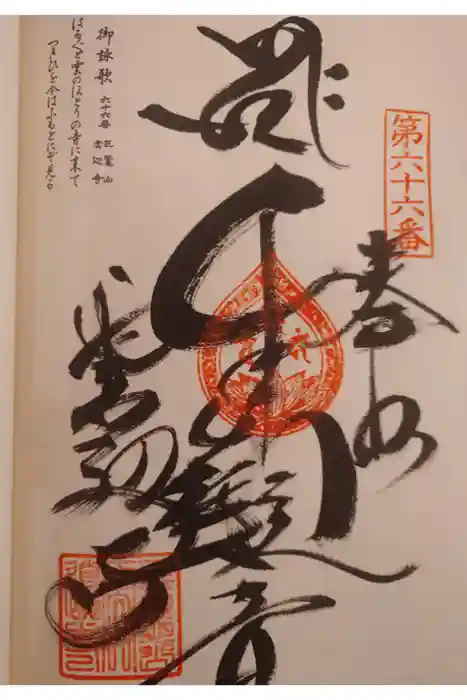 第六十六番
奉納
千手観音
雲辺寺
御詠歌 六十六番 巨鼇山 雲辺寺
はる〴〵と雲のほとりの寺に来て
つきひを今はふもとにぞ見る